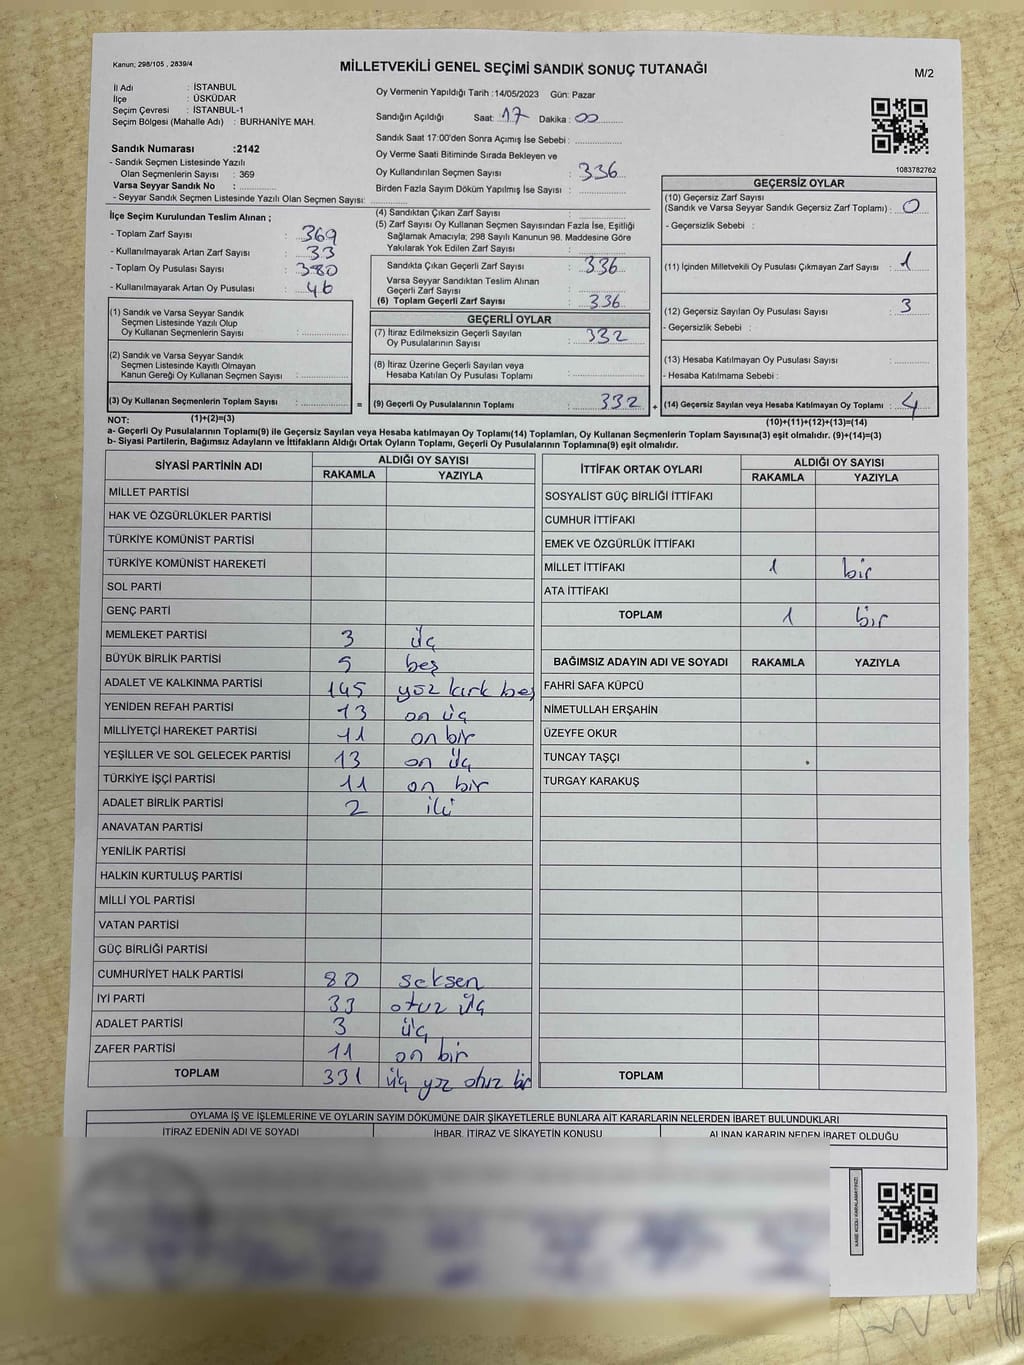 Kanun; 298/105 , 2839/4
MİLLETVEKİLİ GENEL SEÇİMİ SANDIK SONUÇ TUTANAĞI
M/2
İl Adı : İSTANBUL
İlçe : ÜSKÜDAR
Seçim Çevresi : İSTANBUL-1
Seçim Bölgesi (Mahalle Adı) : BURHANİYE MAH.
Sandık Numarası :2142
- Sandık Seçmen Listesinde Yazılı
Olan Seçmenlerin Sayısı : 369
Varsa Seyyar Sandık No :
- Seyyar Sandık Seçmen Listesinde Yazılı Olan Seçmen Sayısı:
Oy Vermenin Yapıldığı Tarih :14/05/2023 Gün: Pazar
Sandığın Açıldığı Saat: 17 Dakika : 00
Sandık Saat 17:00'den Sonra Açımış İse Sebebi :
Oy Verme Saati Bitiminde Sırada Bekleyen ve
Oy Kullandırılan Seçmen Sayısı : 336
Birden Fazla Sayım Döküm Yapılmış İse Sayısı :
1083782762
İlçe Seçim Kurulundan Teslim Alınan ;
- Toplam Zarf Sayısı : 369
- Kullanılmayarak Artan Zarf Sayısı : 33
- Toplam Oy Pusulası Sayısı : 380
- Kullanılmayarak Artan Oy Pusulası : 46
(1) Sandık ve Varsa Seyyar Sandık
Seçmen Listesinde Yazılı Olup
Oy Kullanan Seçmenlerin Sayısı :
(2) Sandık ve Varsa Seyyar Sandık
Seçmen Listesinde Kayıtlı Olmayan
Kanun Gereği Oy Kullanan Seçmen Sayısı :
(3) Oy Kullanan Seçmenlerin Toplam Sayısı :
(4) Sandıktan Çıkan Zarf Sayısı :
(5) Zarf Sayısı Oy Kullanan Seçmen Sayısından Fazla İse, Eşitliği
Sağlamak Amacıyla; 298 Sayılı Kanunun 98. Maddesine Göre
Yakılarak Yok Edilen Zarf Sayısı :
Sandıkta Çıkan Geçerli Zarf Sayısı : 336
Varsa Seyyar Sandıktan Teslim Alınan
Geçerli Zarf Sayısı :
(6) Toplam Geçerli Zarf Sayısı : 336
GEÇERLİ OYLAR
(7) İtiraz Edilmeksizin Geçerli Sayılan
Oy Pusulalarının Sayısı : 332
(8) İtiraz Üzerine Geçerli Sayılan veya
Hesaba Katılan Oy Pusulası Toplamı :
= (9) Geçerli Oy Pusulalarının Toplamı : 332
GEÇERSİZ OYLAR
(10) Geçersiz Zarf Sayısı
(Sandık ve Varsa Seyyar Sandık Geçersiz Zarf Toplamı) : 0
- Geçersizlik Sebebi :
(11) İçinden Milletvekili Oy Pusulası Çıkmayan Zarf Sayısı : 1
(12) Geçersiz Sayılan Oy Pusulası Sayısı : 3
- Geçersizlik Sebebi :
(13) Hesaba Katılmayan Oy Pusulası Sayısı :
- Hesaba Katılmama Sebebi :
+ (14) Geçersiz Sayılan veya Hesaba Katılmayan Oy Toplamı : 4
NOT: (1)+(2)=(3)
(10)+(11)+(12)+(13)=(14)
a- Geçerli Oy Pusulalarının Toplamı(9) ile Geçersiz Sayılan veya Hesaba katılmayan Oy Toplamı(14) Toplamları, Oy Kullanan Seçmenlerin Toplam Sayısına(3) eşit olmalıdır. (9)+(14)=(3)
b- Siyasi Partilerin, Bağımsız Adayların ve İttifakların Aldığı Ortak Oyların Toplamı, Geçerli Oy Pusulalarının Toplamına(9) eşit olmalıdır.
SİYASİ PARTİNİN ADI
ALDIĞI OY SAYISI
RAKAMLA YAZIYLA
MİLLET PARTİSİ
HAK VE ÖZGÜRLÜKLER PARTİSİ
TÜRKİYE KOMÜNİST PARTİSİ
TÜRKİYE KOMÜNİST HAREKETİ
SOL PARTİ
GENÇ PARTİ
MEMLEKET PARTİSİ 3 üç
BÜYÜK BİRLİK PARTİSİ 5 beş
ADALET VE KALKINMA PARTİSİ 145 yüz kırk beş
YENİDEN REFAH PARTİSİ 13 on üç
MİLLİYETÇİ HAREKET PARTİSİ 11 on bir
YEŞİLLER VE SOL GELECEK PARTİSİ 13 on üç
TÜRKİYE İŞÇİ PARTİSİ 11 on bir
ADALET BİRLİK PARTİSİ 2 iki
ANAVATAN PARTİSİ
YENİLİK PARTİSİ
HALKIN KURTULUŞ PARTİSİ
MİLLİ YOL PARTİSİ
VATAN PARTİSİ
GÜÇ BİRLİĞİ PARTİSİ
CUMHURİYET HALK PARTİSİ 80 seksen
İYİ PARTİ 33 otuz üç
ADALET PARTİSİ 3 üç
ZAFER PARTİSİ 11 on bir
TOPLAM 331 üç yüz otuz bir
İTTİFAK ORTAK OYLARI
ALDIĞI OY SAYISI
RAKAMLA YAZIYLA
SOSYALİST GÜÇ BİRLİĞİ İTTİFAKI
CUMHUR İTTİFAKI
EMEK VE ÖZGÜRLÜK İTTİFAKI
MİLLET İTTİFAKI 1 bir
ATA İTTİFAKI
TOPLAM 1 bir
BAĞIMSIZ ADAYIN ADI VE SOYADI RAKAMLA YAZIYLA
FAHRİ SAFA KÜPCÜ
NİMETULLAH ERŞAHİN
ÜZEYFE OKUR
TUNCAY TAŞÇI
TURGAY KARAKUŞ
TOPLAM
OYLAMA İŞ VE İŞLEMLERİNE VE OYLARIN SAYIM DÖKÜMÜNE DAİR ŞİKAYETLERLE BUNLARA AİT KARARLARIN NELERDEN İBARET BULUNDUKLARI
İTİRAZ EDENİN ADI VE SOYADI
İHBAR, İTİRAZ VE ŞİKAYETİN KONUSU
ALINAN KARARIN NEDEN İBARET OLDUĞU
KARE KODU KARALAMAYINIZ!